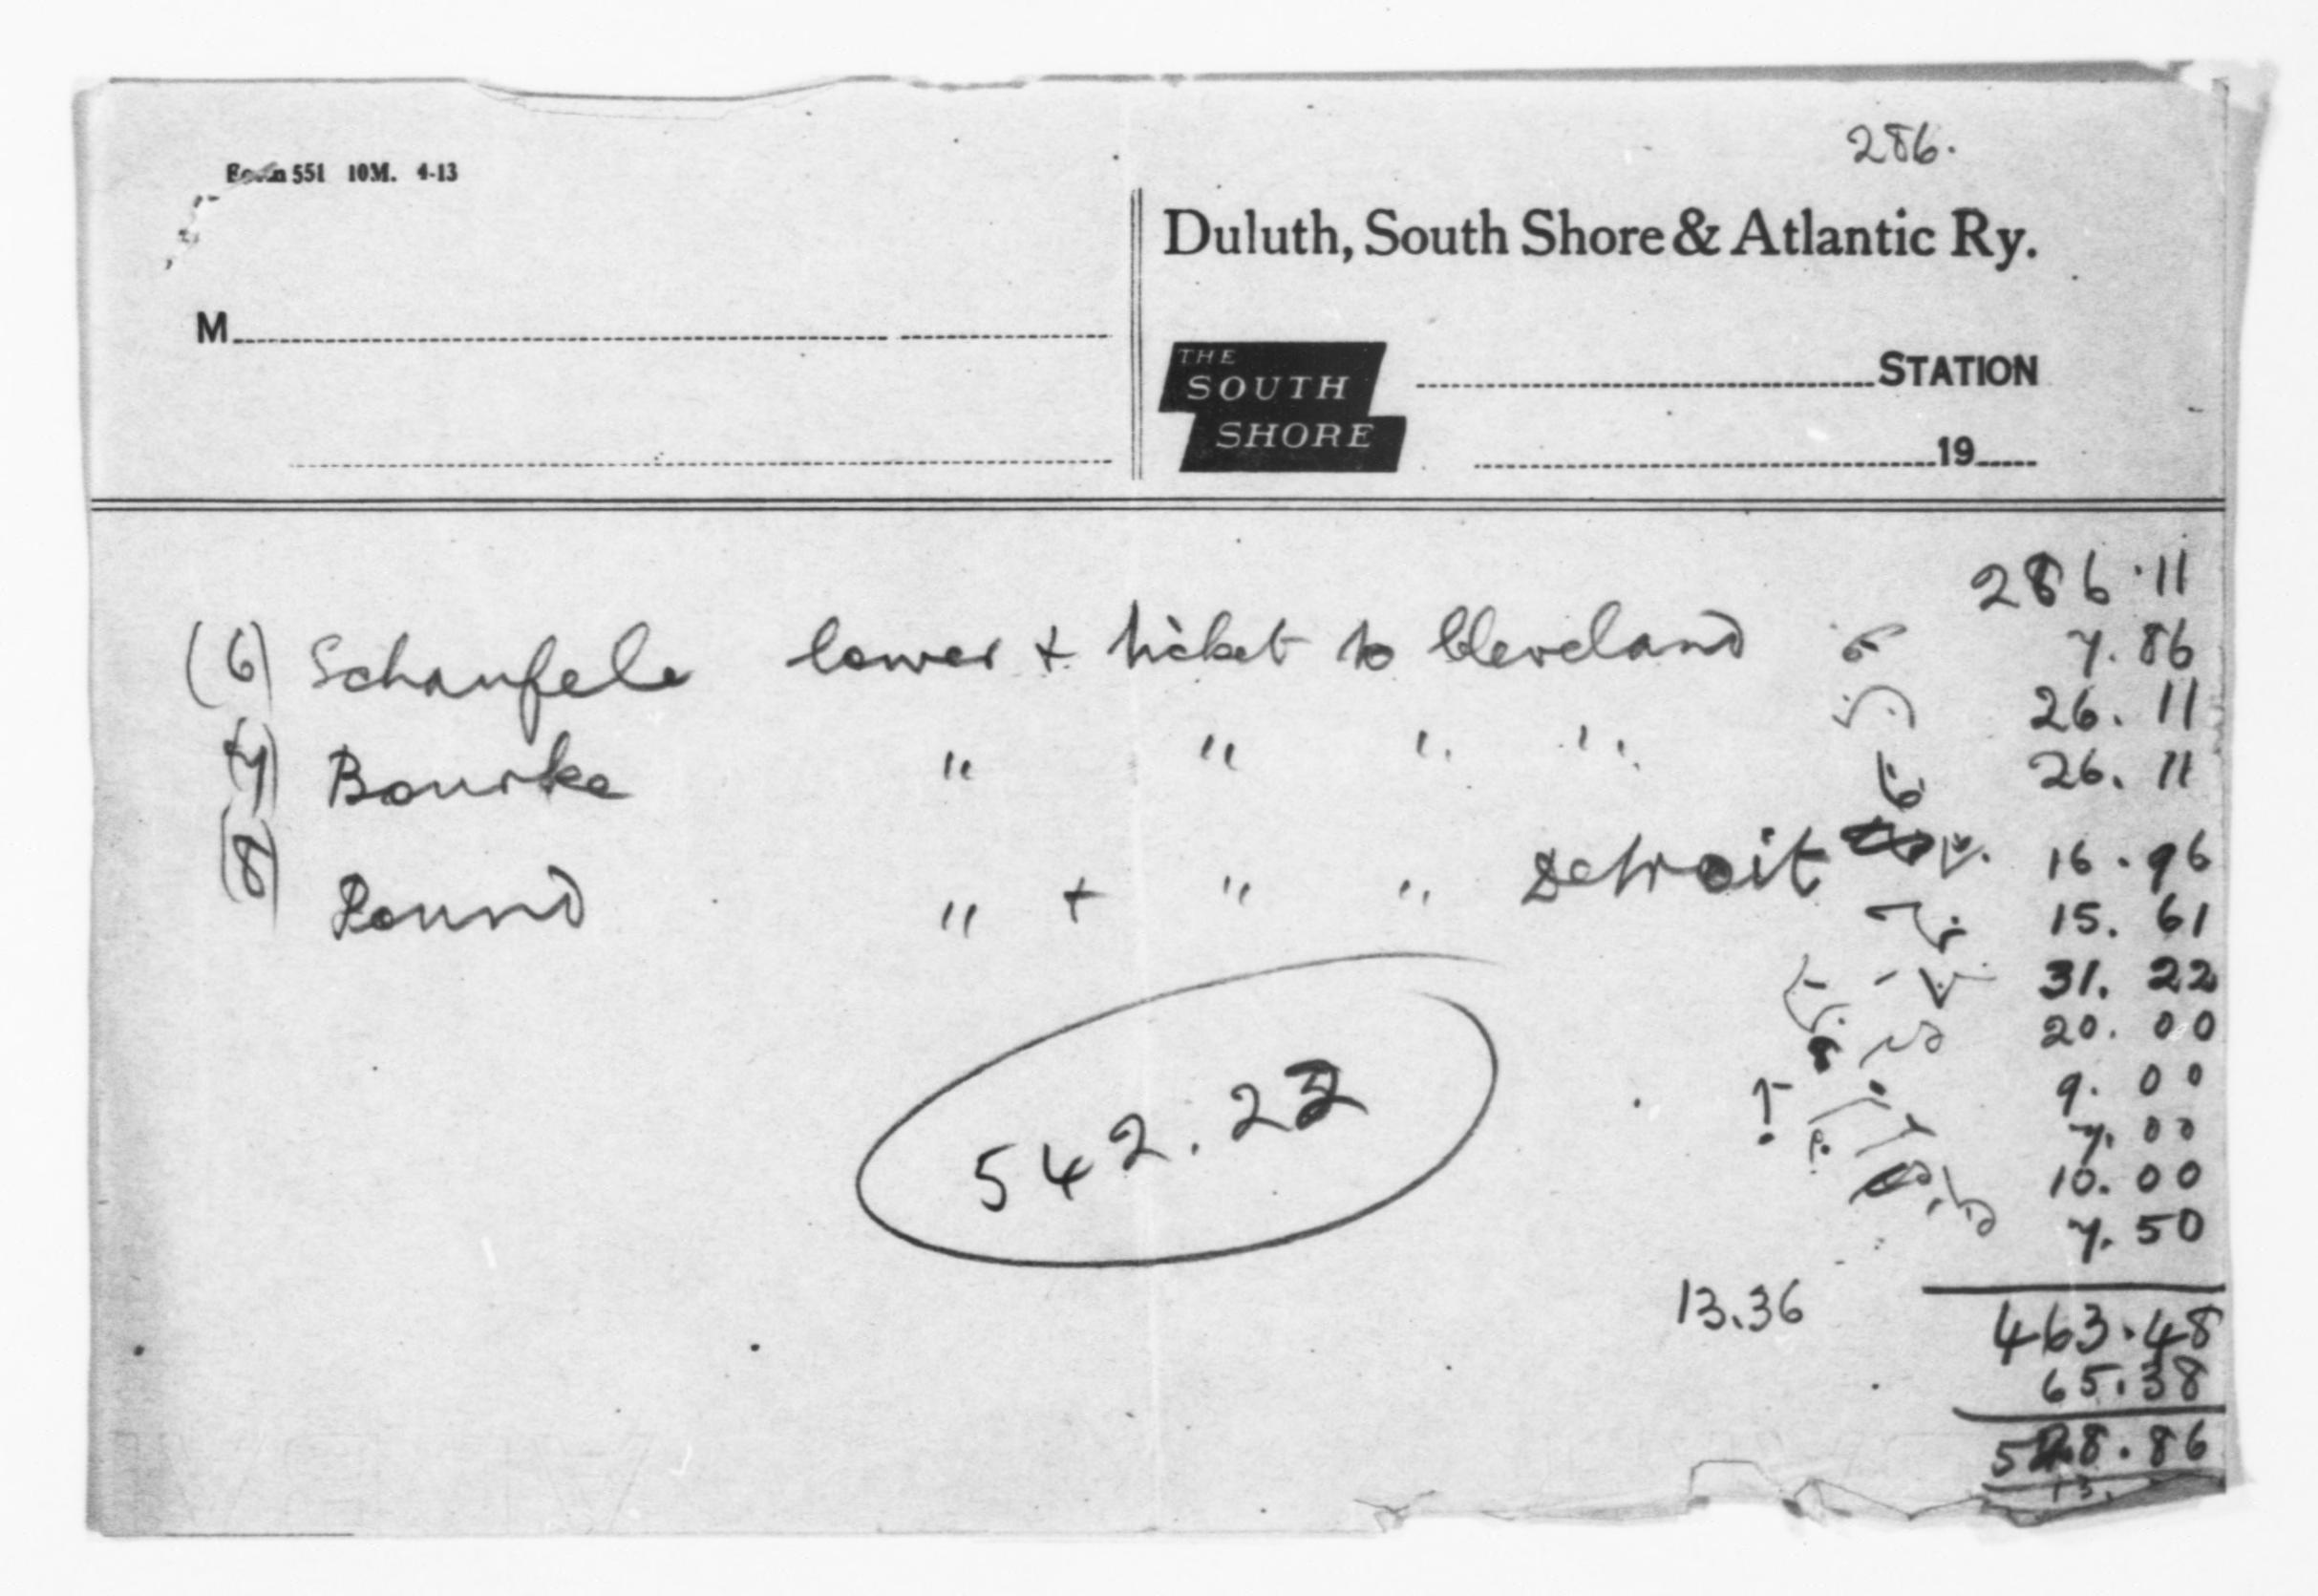 286.
Form 551 10M. 4-13
Duluth, South Shore & Atlantic Ry.
M
THE
SOUTH
SHORE
STATION
19
286.11
(6) Schaufele lower + ticket to Cleveland 7.86
26.11
(7) Bourke " " " " 26.11
(8) Pound " + " " Detroit 16.96
15.61
31.22
20.00
9.00
7.00
10.00
542.22
7.50
13.36
463.48
65.38
528.86
13.